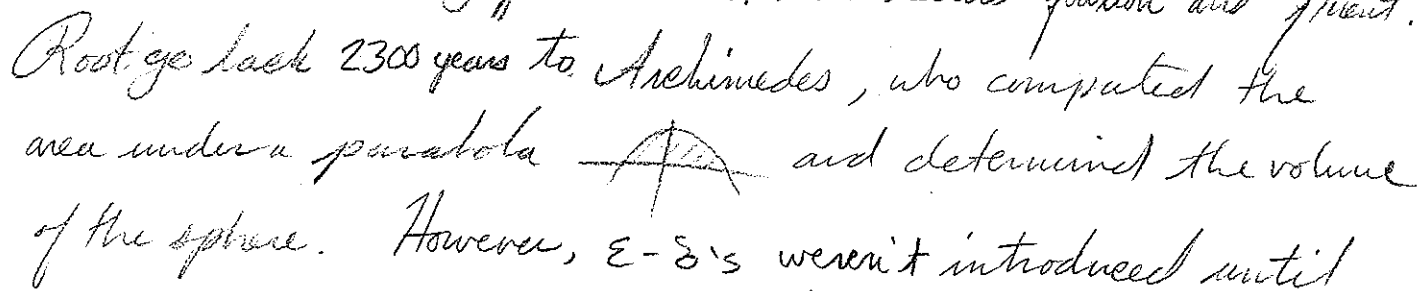 and
Roots go back 2300 years to Archimedes, who computed the
area under a parabola and determined the volume
of the sphere. However, ε-δ's weren't introduced until